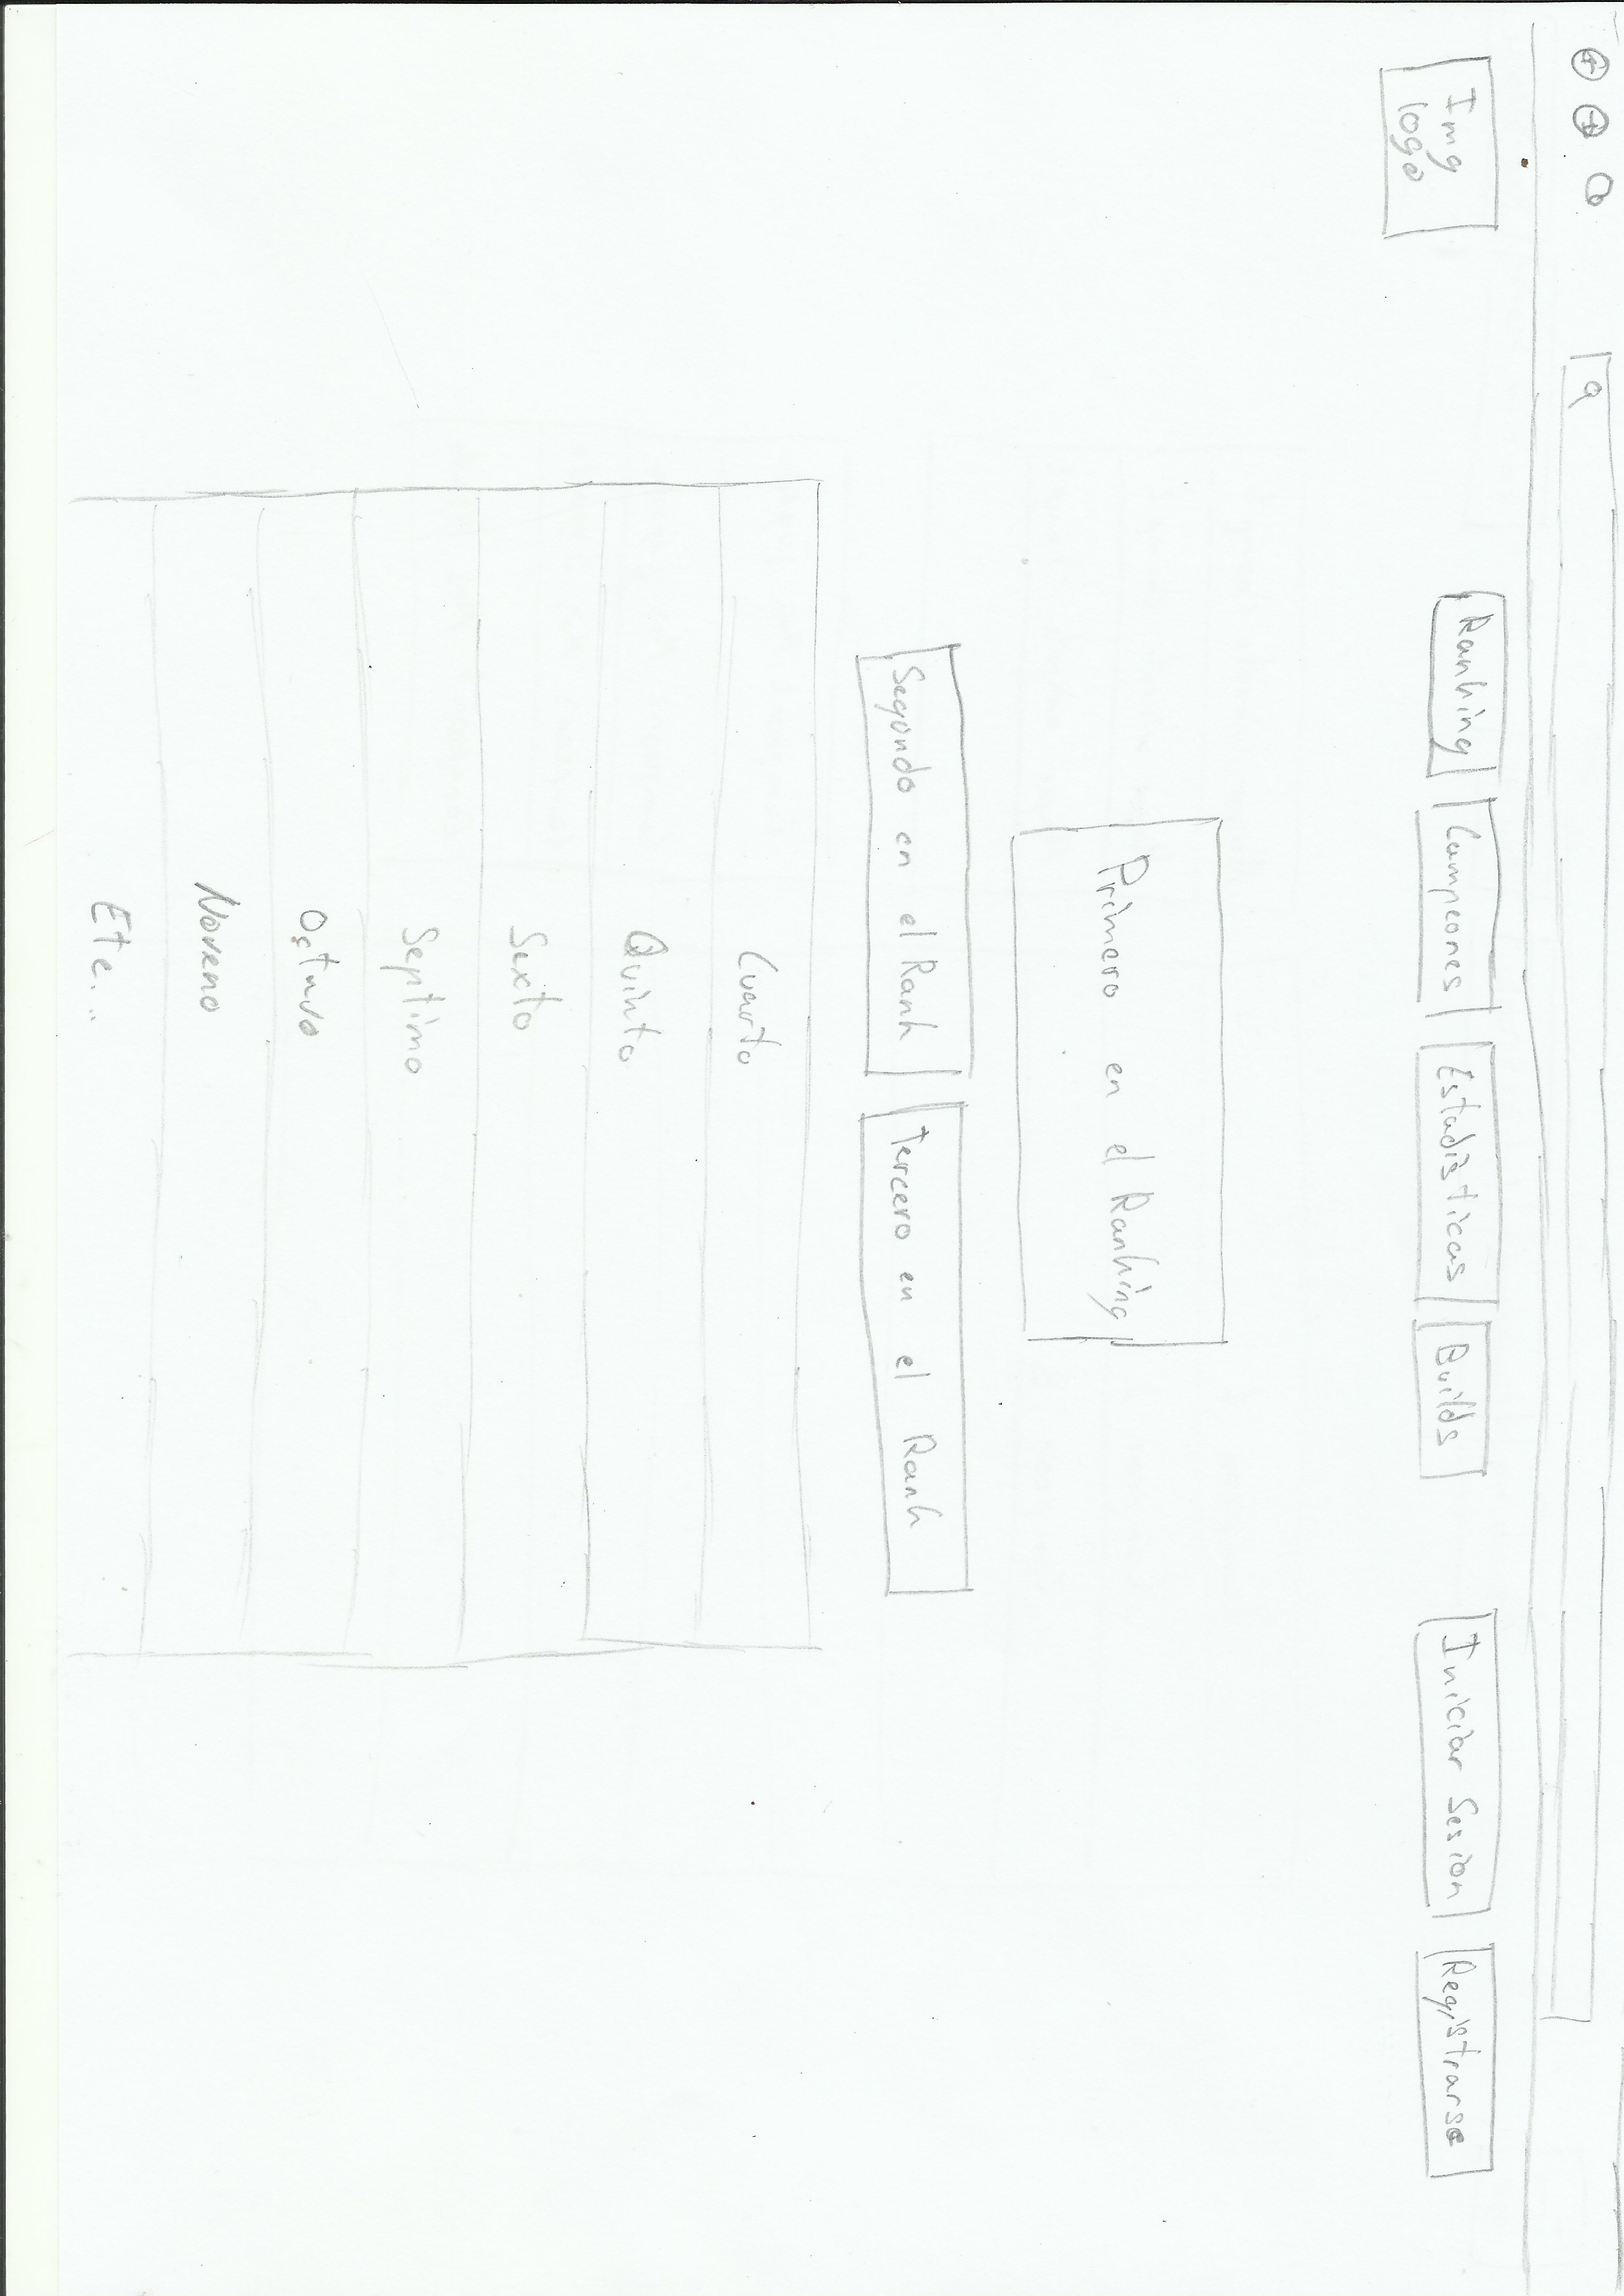 Img
logo
Ranking
Campeones
Estadisticas
Builds
Iniciar Sesion
Registrarse
Primero en el Ranking
Segundo en el Rank
Tercero en el Rank
Cuarto
Quinto
Sexto
Septimo
Octavo
Noveno
Etc...